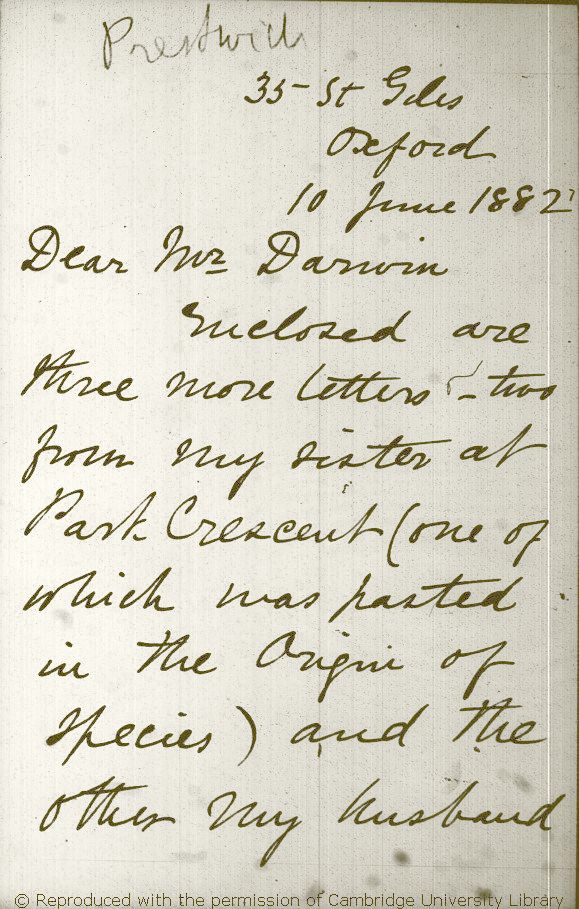 Prestwich
35 - St Giles
Oxford
10 June 1882
Dear Mr Darwin
Enclosed are
three more letters - two
from my sister at
Park Crescent (one of
which was pasted
in the Origin of
Species) and the
other my husband
© Reproduced with the permission of Cambridge University Library